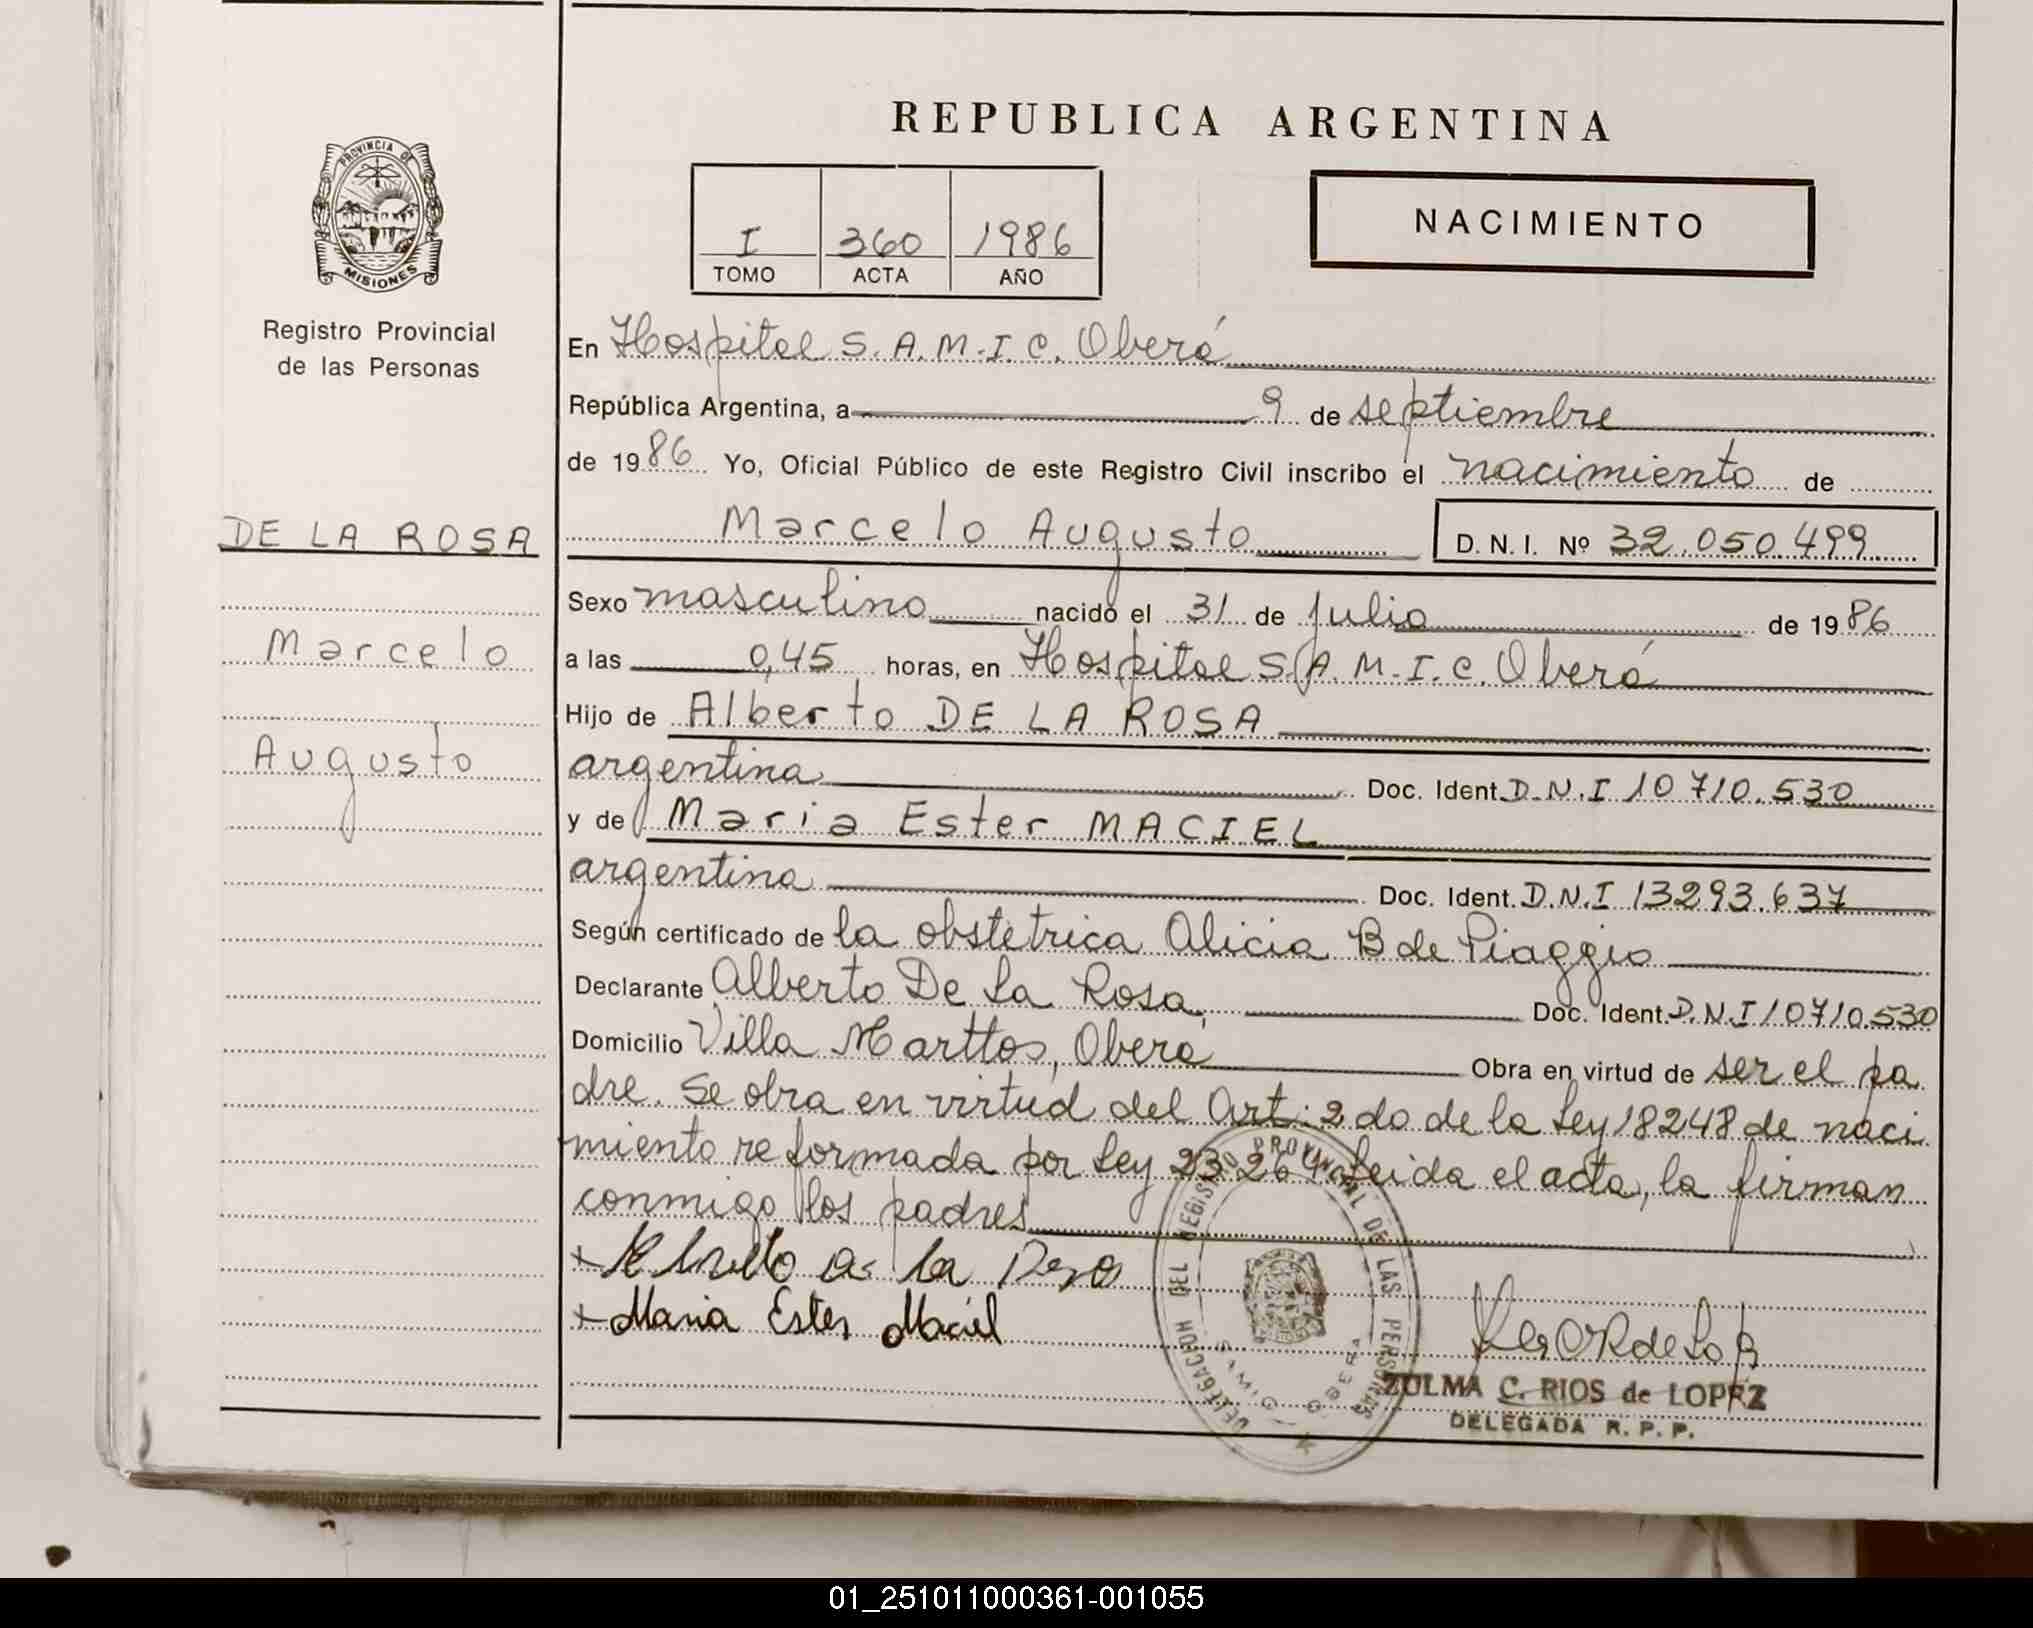 REPUBLICA ARGENTINA
PROVINCIA DE
MISIONES
Registro Provincial
de las Personas
I 360 1986
TOMO ACTA AÑO
NACIMIENTO
En Hospital S.A.M.I.C. Oberá
República Argentina, a 9 de septiembre
de 1986 Yo, Oficial Público de este Registro Civil inscribo el nacimiento de
DE LA ROSA
Marcelo
Augusto
Marcelo Augusto D.N.I. Nº 32.050.499
Sexo masculino nacido el 31 de julio de 1986
a las 0,45 horas, en Hospital S.A.M.I.C. Oberá
Hijo de Alberto DE LA ROSA
argentina Doc. Ident. D.N.I 10710.530
y de Maria Ester MACIEL
argentina Doc. Ident. D.N.I 13293.637
Según certificado de la obstetrica Alicia B de Piaggio
Declarante Alberto De La Rosa, Doc. Ident. D.N.I 10710.530
Domicilio Villa Marttos, Oberá Obra en virtud de ser el pa
dre. Se obra en virtud del Art: 2do de la Ley 18248 de naci
miento reformada por Ley 23264 Leida el acta, la firman
conmigo los padres
+ Alberto de la Rosa
+ Maria Ester Maciel
DELEGACION DEL REGISTRO PROVINCIAL DE LAS PERSONAS
SAMIC OBERA
ZULMA C. RIOS de LOPEZ
DELEGADA R.P.P.
01_251011000361-001055